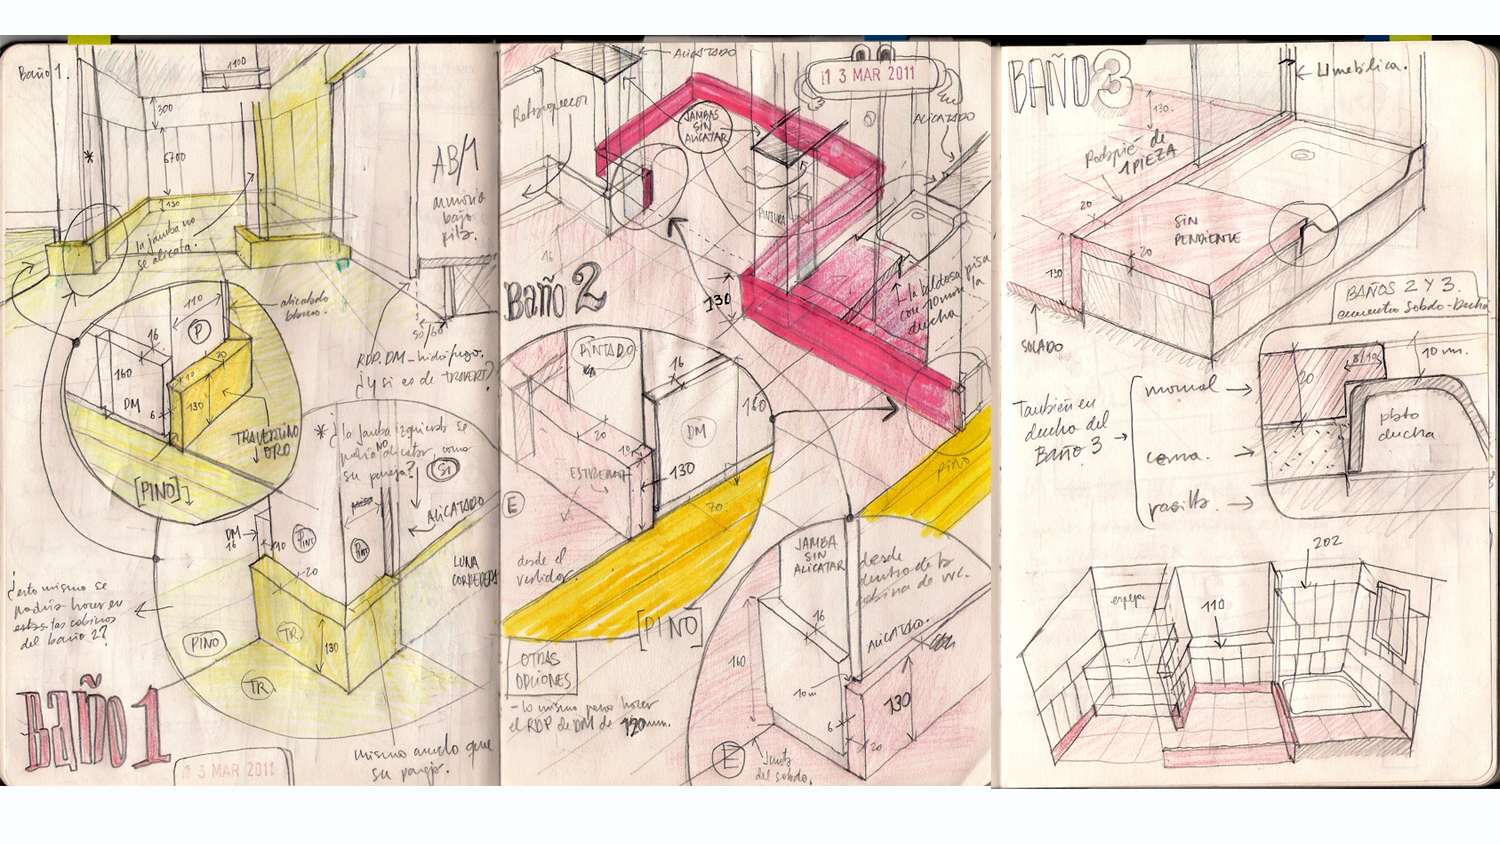 Baño 1.
1100
300
6700
130
*
la jamba no
se alicata.
AB/1
armario
bajo
pila.
110
P
16
20
160
10
DM
6
130
alicatado
blanco.
TRAVERTINO
ORO
[PINO]
55/60
RDP. DM-hidrófugo.
¿y si es de TRAVERT?
* ¿la jamba izquierda se
podría no alicatar, como
su pareja?
SI
ALICATADO
DM
16
10
PINT
PINT
20
LUNA
CORREDERA
TR
130
PINO
TR
¿esto mismo se
podría hacer en
estas las cabinas
del baño 2?
BAÑO 1
1 3 MAR 2011
mismo ancho que
su pareja.
ALICATADO
1 3 MAR 2011
JAMBAS
SIN
ALICATAR
ALICATADO
PINTURA
16
BAÑO 2
130
la baldosa pisa
con 10mm la
ducha
PINTADO
16
20
10
DM
160
130
E
70
desde el
vestidor.
[PINO]
PINO
OTRAS
OPCIONES
- lo mismo para hacer
el RDP de DM de 130mm.
JAMBA
SIN
ALICATAR
desde
dentro de la
cabina de WC.
16
ALICATADO.
160
10m
130
6
20
E
Junta
del solado.
BAÑO 3
130.
Rodapie de
1 PIEZA
20
SIN
PENDIENTE
20
130
SOLADO
BAÑOS 2 Y 3.
encuentro Solado-Ducha
8/10
10 mm.
20
plato
ducha
También en
ducha del
BAÑO 3
normal
coma.
pasillo.
202
espejo
110